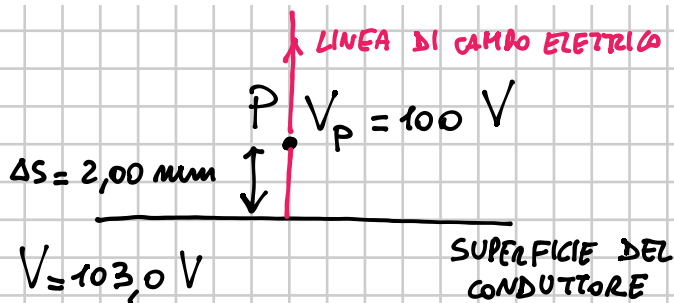 LINEA DI CAMPO ELETTRICO
P Vp = 100 V
ΔS = 2,00 mm
V = 103,0 V
SUPERFICIE DEL
CONDUTTORE